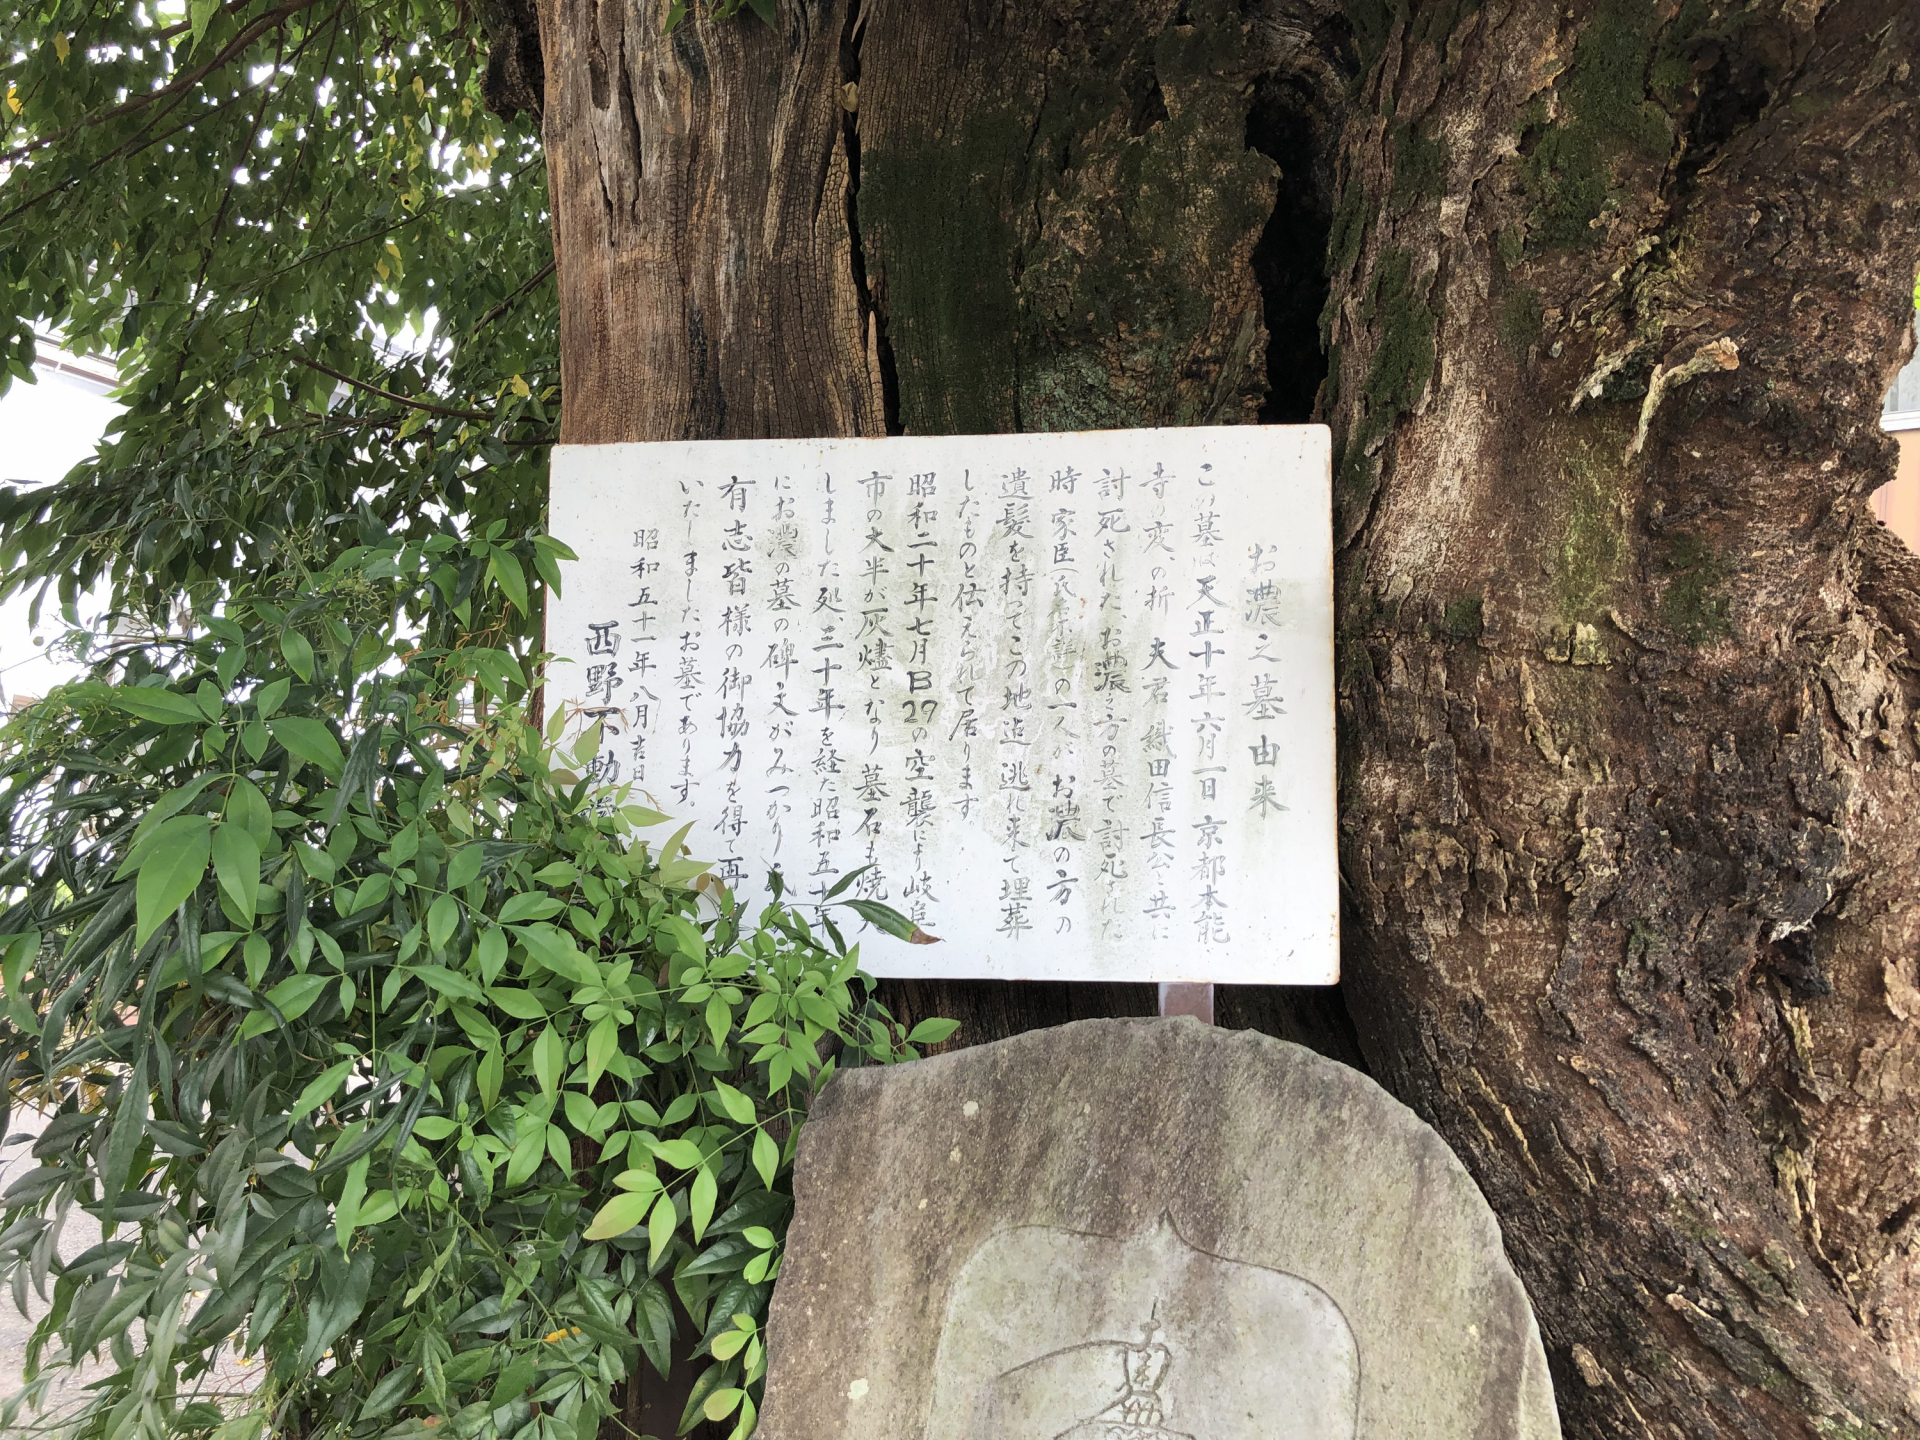 お濃之墓由来
この墓は天正十年六月一日京都本能
寺の変、の折 夫君織田信長公と共に
討死された、お濃の方の墓で討死された
時家臣(氏不詳)の一人がお濃の方の
遺髪を持ってこの地迄逃れ来て埋葬
したものと伝えられて居ります
昭和二十年七月B29の空襲により岐阜
市の大半が灰燼となり墓石も焼
しました処、三十年を経た昭和五十年
にお濃の墓の碑文がみつかり
有志皆様の御協力を得て再
いたしましたお墓であります。
昭和五十一年八月吉日
西野不動
墓